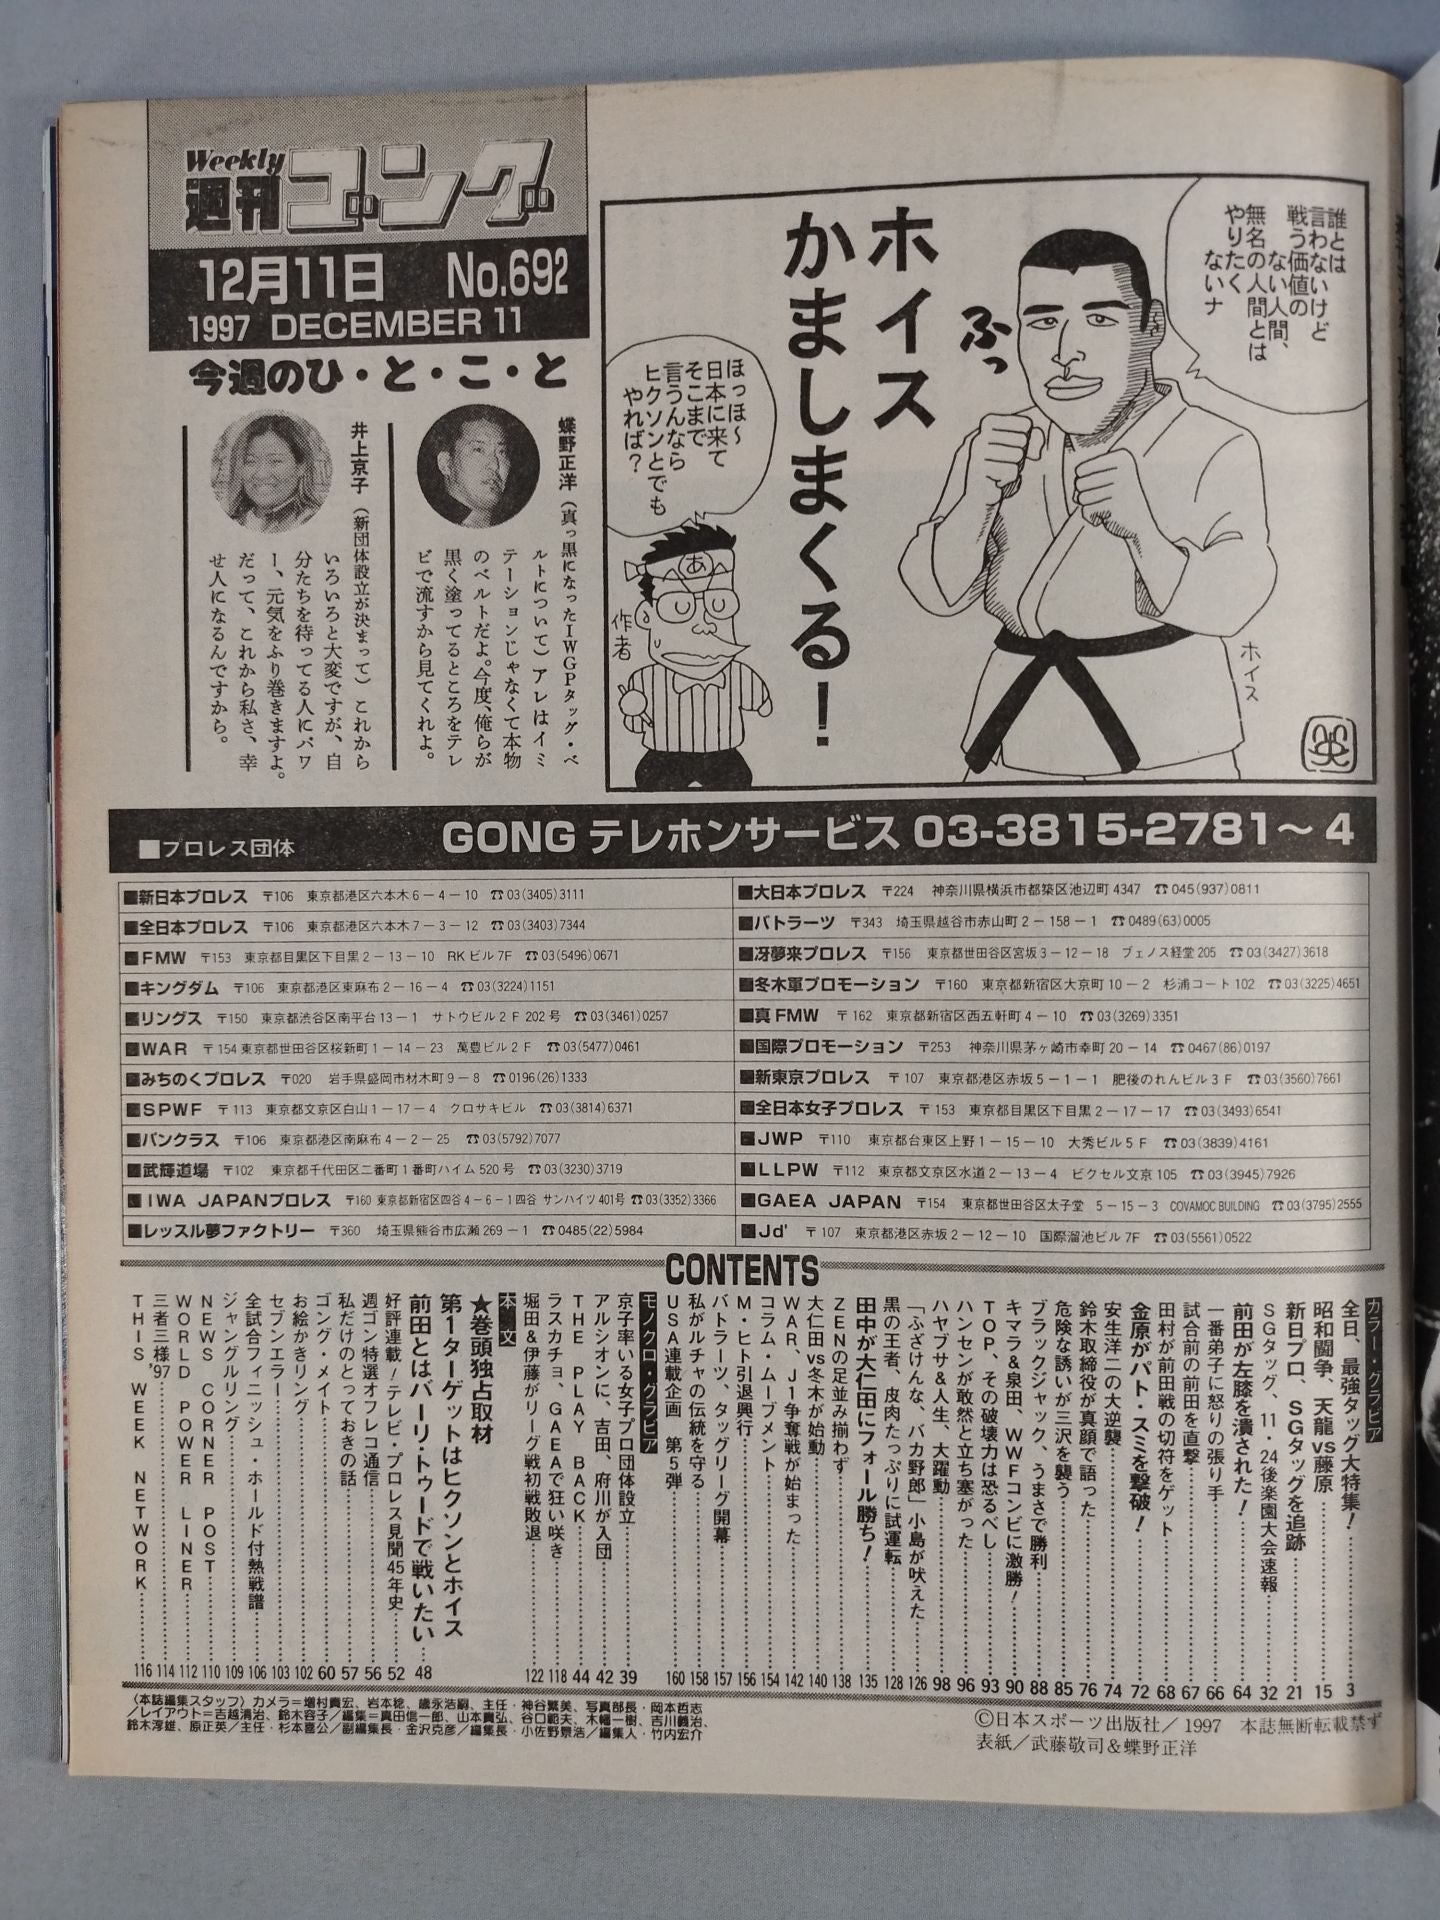 Weekly
週刊ゴング
12月11日 No.692
1997 DECEMBER 11
今週のひ・と・こ・と
蝶野正洋（真っ黒になったIWGPタッグ・ベ
ルトについて）アレはイミ
テーションじゃなくて本物
のベルトだよ。今度、俺らが
黒く塗ってるところをテレ
ビで流すから見てくれよ。
井上京子（新団体設立が決まって）これから
いろいろと大変ですが、自
分たちを待ってる人にパワ
ー、元気をふり巻きますよ。
だって、これから私さ、幸
せ人になるんですから。
誰とは
言わないけど
戦う価値の
ない人間、
無名の人間とは
やりたく
ないナ
ホイス
かましまくる!
ふっ
ほっほ〜
日本に来て
そこまで
言うんなら
ヒクソンとでも
やれば?
あ
作者
ホイス
■プロレス団体
GONG テレホンサービス 03-3815-2781〜4
■新日本プロレス 〒106 東京都港区六本木6-4-10 ☎03(3405)3111
■全日本プロレス 〒106 東京都港区六本木7-3-12 ☎03(3403)7344
■FMW 〒153 東京都目黒区下目黒2-13-10 RKビル7F ☎03(5496)0671
■キングダム 〒106 東京都港区東麻布2-16-4 ☎03(3224)1151
■リングス 〒150 東京都渋谷区南平台13-1 サトウビル2F 202号 ☎03(3461)0257
■WAR 〒154 東京都世田谷区桜新町1-14-23 萬豊ビル2F ☎03(5477)0461
■みちのくプロレス 〒020 岩手県盛岡市材木町9-8 ☎0196(26)1333
■SPWF 〒113 東京都文京区白山1-17-4 クロサキビル ☎03(3814)6371
■パンクラス 〒106 東京都港区南麻布4-2-25 ☎03(5792)7077
■武輝道場 〒102 東京都千代田区二番町1番町ハイム520号 ☎03(3230)3719
■IWA JAPANプロレス 〒160 東京都新宿区四谷4-6-1四谷 サンハイツ401号 ☎03(3352)3366
■レッスル夢ファクトリー 〒360 埼玉県熊谷市広瀬269-1 ☎0485(22)5984
■大日本プロレス 〒224 神奈川県横浜市都築区池辺町4347 ☎045(937)0811
■バトラーツ 〒343 埼玉県越谷市赤山町2-158-1 ☎0489(63)0005
■冴夢来プロレス 〒156 東京都世田谷区宮坂3-12-18 ブェノス経堂205 ☎03(3427)3618
■冬木軍プロモーション 〒160 東京都新宿区大京町10-2 杉浦コート102 ☎03(3225)4651
■真FMW 〒162 東京都新宿区西五軒町4-10 ☎03(3269)3351
■国際プロモーション 〒253 神奈川県茅ヶ崎市幸町20-14 ☎0467(86)0197
■新東京プロレス 〒107 東京都港区赤坂5-1-1 肥後のれんビル3F ☎03(3560)7661
■全日本女子プロレス 〒153 東京都目黒区下目黒2-17-17 ☎03(3493)6541
■JWP 〒110 東京都台東区上野1-15-10 大秀ビル5F ☎03(3839)4161
■LLPW 〒112 東京都文京区水道2-13-4 ビクセル文京105 ☎03(3945)7926
■GAEA JAPAN 〒154 東京都世田谷区太子堂 5-15-3 COVAMOC BUILDING ☎03(3795)2555
■Jd' 〒107 東京都港区赤坂2-12-10 国際溜池ビル7F ☎03(5561)0522
CONTENTS
カラー・グラビア
全日、最強タッグ大特集!………3
昭和闘争、天龍vs藤原………15
新日プロ、SGタッグを追跡………21
SGタッグ、11・24後楽園大会速報………32
前田が左膝を潰された!………64
一番弟子に怒りの張り手………66
試合前の前田を直撃………67
田村が前田戦の切符をゲット………68
金原がパト・スミを撃破!………72
安生洋二の大逆襲………74
鈴木取締役が真顔で語った………76
危険な誘いが三沢を襲う………85
ブラックジャック、うまさで勝利………88
キマラ&泉田、WWFコンビに激勝!………90
TOP、その破壊力は恐るべし………93
ハンセンが敢然と立ち塞がった………96
ハヤブサ&人生、大躍動………98
「ふざけんな、バカ野郎」小島が吠えた………126
黒の王者、皮肉たっぷりに試運転………128
田中が大仁田にフォール勝ち!………135
ZENの足並み揃わず………138
大仁田vs冬木が始動………140
WAR、J1争奪戦が始まった………142
コラム・ムーブメント………154
M・ヒト引退興行………156
バトラーツ、タッグリーグ開幕………157
私がルチャの伝統を守る………158
USA連載企画 第5弾………160
モノクロ・グラビア
京子率いる女子プロ団体設立………39
アルシオンに、吉田、府川が入団………42
THE PLAY BACK………44
ラスカチョ、GAEAで狂い咲き………118
堀田&伊藤がリーグ戦初戦敗退………122
本文
★巻頭独占取材
第1ターゲットはヒクソンとホイス
前田とはバーリ・トゥードで戦いたい………48
好評連載!テレビ・プロレス見聞45年史………52
週ゴン特選オフレコ通信………56
私だけのとっておきの話………57
ゴング・メイト………60
お絵かきリング………102
セブンエラー………103
全試合フィニッシュ・ホールド付熱戦譜………106
ジャングルリング………109
NEWS CORNER POST………110
WORLD POWER LINER………112
三者三様'97………114
THIS WEEK NETWORK………116
〈本誌編集スタッフ〉カメラ=増村貴宏、岩本稔、歳永浩嗣、主任・神谷繁美、写真部長・岡本哲志
/レイアウト=吉越清治、鈴木容子/編集=真田信一郎、山本貴弘、谷口範夫、木幡一樹、吉川義治、
鈴木淳雄、原正英/主任・杉本喜公/副編集長・金沢克彦/編集長・小佐野景浩/編集人・竹内宏介
©日本スポーツ出版社/1997 本誌無断転載禁ず
表紙/武藤敬司&蝶野正洋